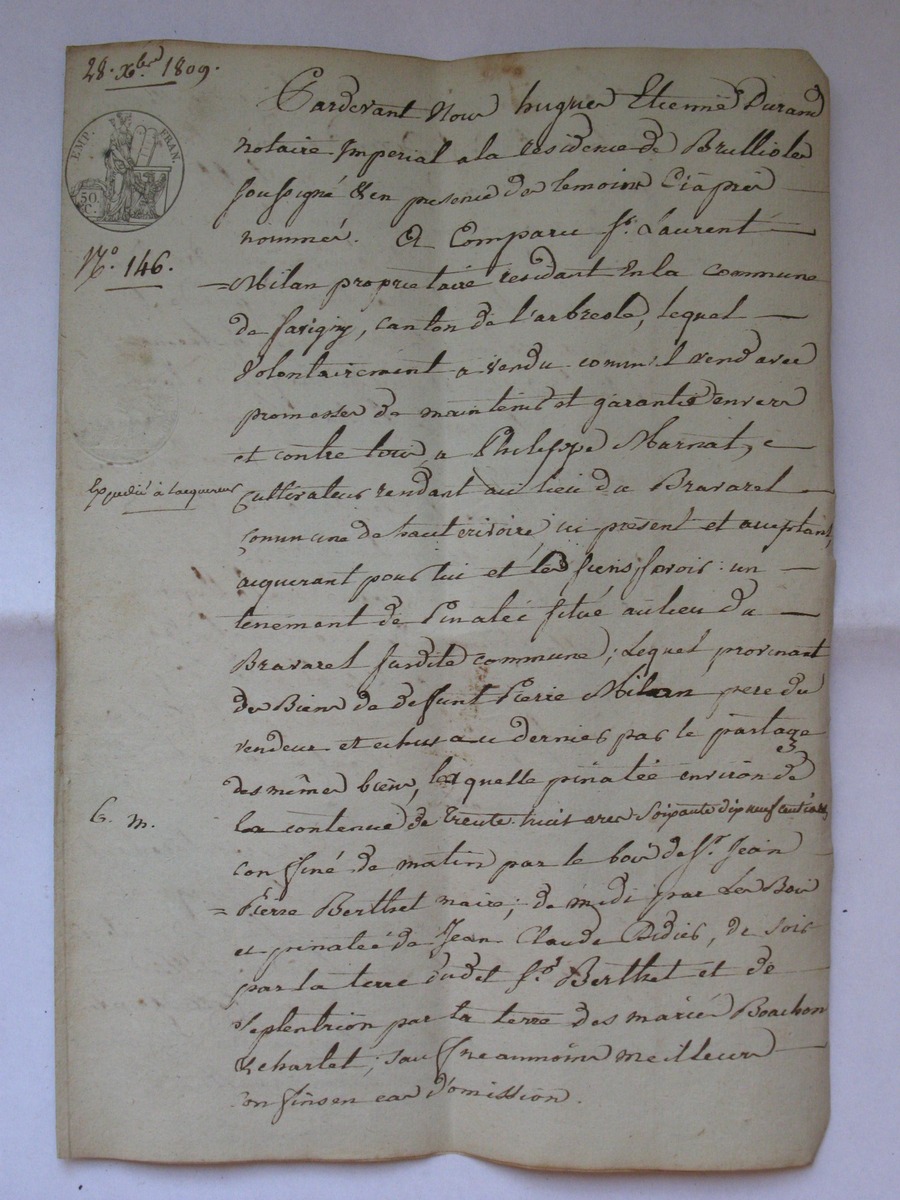 28 xbre 1809.
EMP. FRAN.
50 C.
N.º 146.
Expedié à lacquereur
C. m.
Pardevant Nous hugues Etienne Durand
notaire Imperial a la residence de Brulliolles
soussigné & en presence des temoins Ciaprès
nommés. A Comparu Sr. Laurent
Milan proprietaire residant En la commune
de Savigny, canton de l'arbresle, lequel
Volontairement a vendu comm'il vend avec
promesses de maintenir et garantir envers
et contre tous, a Philippe Marnat,
Cultivateur rendant au lieu du Bravaret
commune de hauterivoire ici présent et acceptant,
acquerant pour lui et les siens, savoir: un
tenement de Pinatée situé au lieu du
Bravaret susdite commune; Lequel provenant
des Biens de defunt Pierre Milan pere du
vendeur et echus a ce dernier par le partage
des mêmes biens, laquelle pinatée environ de
la contenue de trente huit ares soixante dix neuf centiares
confiné de matin par le bois de Sr. Jean
Pierre Berthet maire; de midi par Les Bois
et pinatée de Jean Claude Didier, de soir
par la terre dudit Sr. Berthet et de
Septentrion par la terre des mariés Boachon
& charlet; sauf neanmoins meilleurs
confins en cas d'omission.